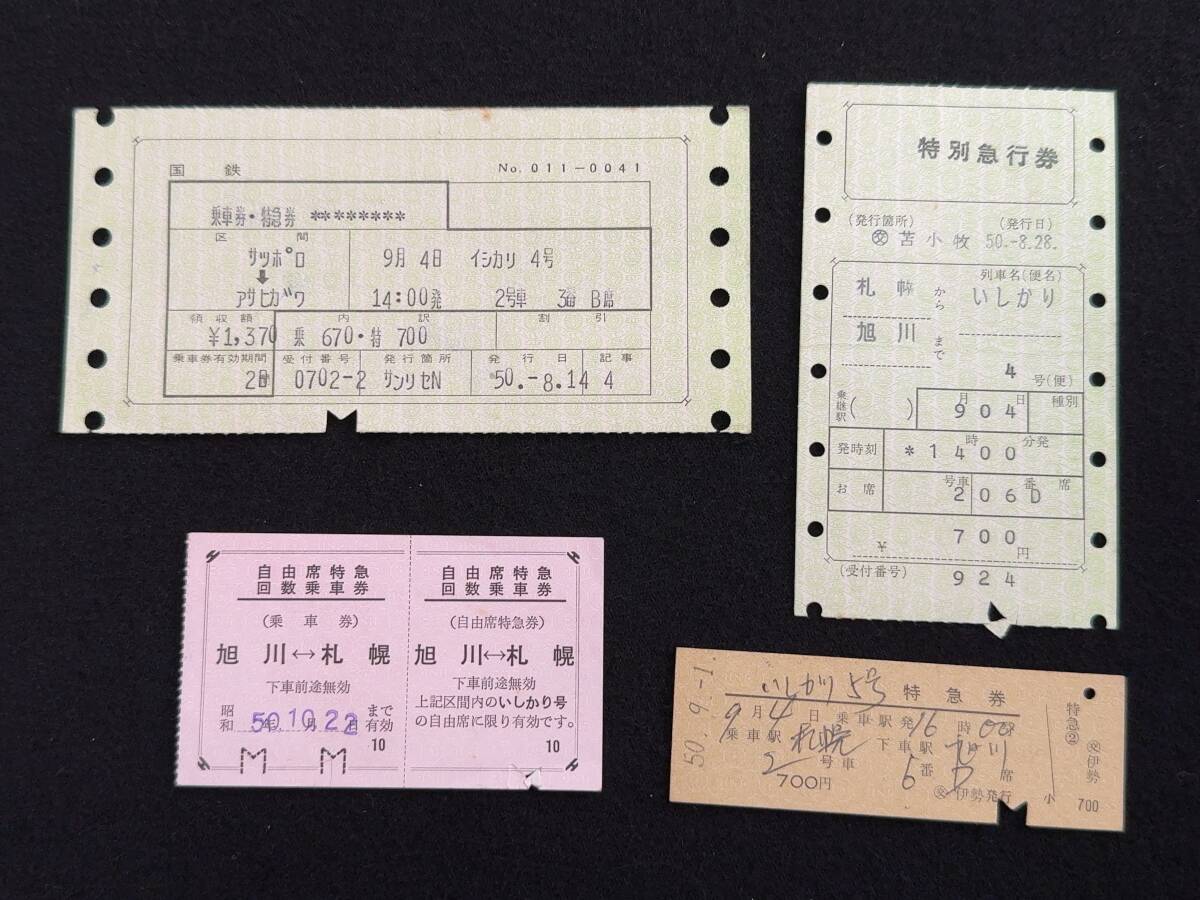 国鉄 No. 011-0041
乗車券・特急券 ********
区間
サツポロ 9月 4日 イシカリ 4号
➡
アサヒガワ 14:00発 2号車 3番 B席
領収額 内訳 割引
¥1,370 乗 670・特 700
乗車券有効期間 受付番号 発行箇所 発行日 記事
2日間 0702-2 サンリセN 50.-8.14 4
特別急行券
(発行箇所) (発行日)
㊋ 苫小牧 50.-8.28.
列車名(便名)
札幌 から いしかり
旭川 まで
4 号(便)
乗継駅 ( ) 月 日 種別
904
発時刻 *1400 時 分発
お席 号車 番 席
206D
¥ 700 円
(受付番号) 924
自由席特急
回数乗車券
(乗車券)
旭川↔札幌
下車前途無効
昭和 50.10.22 年 月 日 まで有効
10
自由席特急
回数乗車券
(自由席特急券)
旭川↔札幌
下車前途無効
上記区間内のいしかり号
の自由席に限り有効です。
10
50.9.-1.
いしかり5号 特急券
9月4日 乗車駅発16時00分
乗車駅 札幌 下車駅 旭川
2号車 6番 D席
700円 交伊勢発行
特急② 小
交伊勢
700